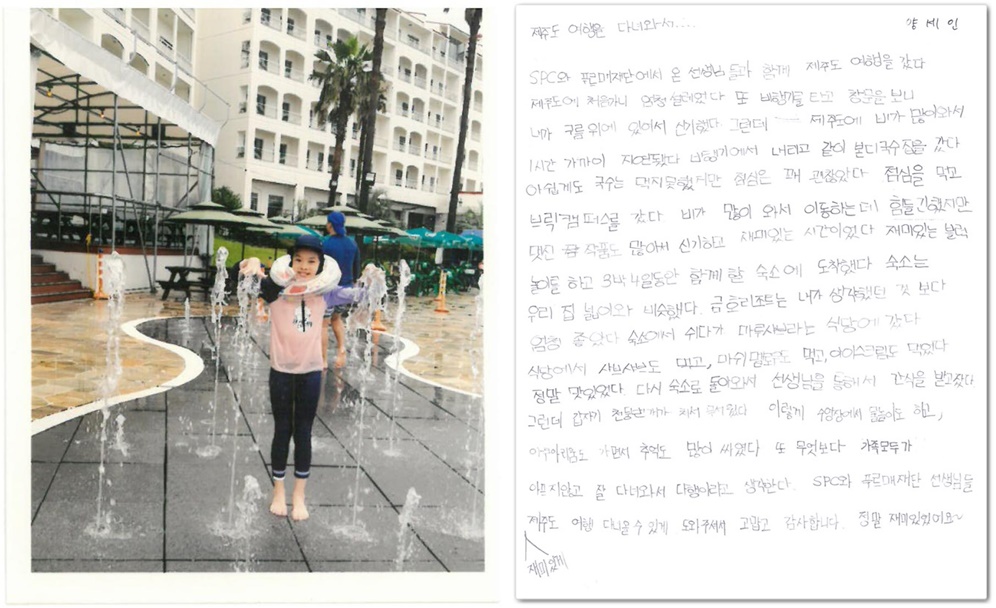 제주도 여행을 다녀와서....
양세인
SPC와 푸르매재단에서 온 선생님들과 함께 제주도 여행을 갔다
제주도에 처음이니 엄청 설레였다 또 비행기를 타고 창문을 보니
내가 구름위에 있어서 신기했다 그런데 제주도에 비가 많이와서
1시간 가까이 지연됐다 비행기에서 내리고 같이 국수집을 갔다
아쉽게도 국수는 먹지못했지만 점심은 꽤 괜찮았다 점심을 먹고
브릭캠퍼스를 갔다 비가 많이 와서 이동하는데 힘들긴했지만
멋진 작품도 많아서 신기하고 재미있는 시간이었다 재미있는 블럭
놀이를 하고 3박4일동안 함께 할 숙소에 도착했다 숙소는
우리 집 넓이와 비슷했다. 금호리조트는 내가 생각했던 것 보다
엄청 좋았다 숙소에서 쉬다가 마루샤브라는 식당에 갔다
식당에서 샤브샤브도 먹고, 먹고, 아이스크림도 먹었다
정말 맛있었다. 다시 숙소로 돌아와서 선생님을 통해서 간식을 받고갔다
그런데 갑자기 천둥번개가 쳐서 무서웠다 이렇게 수영장에서 물놀이도 하고,
아쿠아리움도 가면서 추억도 많이 쌓였다 또 무엇보다 가족모두가
아프지않고 잘 다녀와서 다행이라고 생각한다. SPC와 푸르매재단 선생님들
제주도 여행 다녀올 수 있게 도와주셔서 고맙고 감사합니다. 정말 재미있었어요~
재미있게